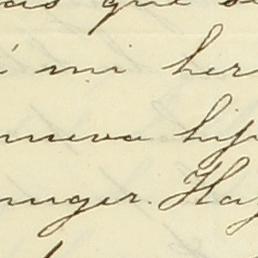 que
mi her
nueva hip
muger. Hay